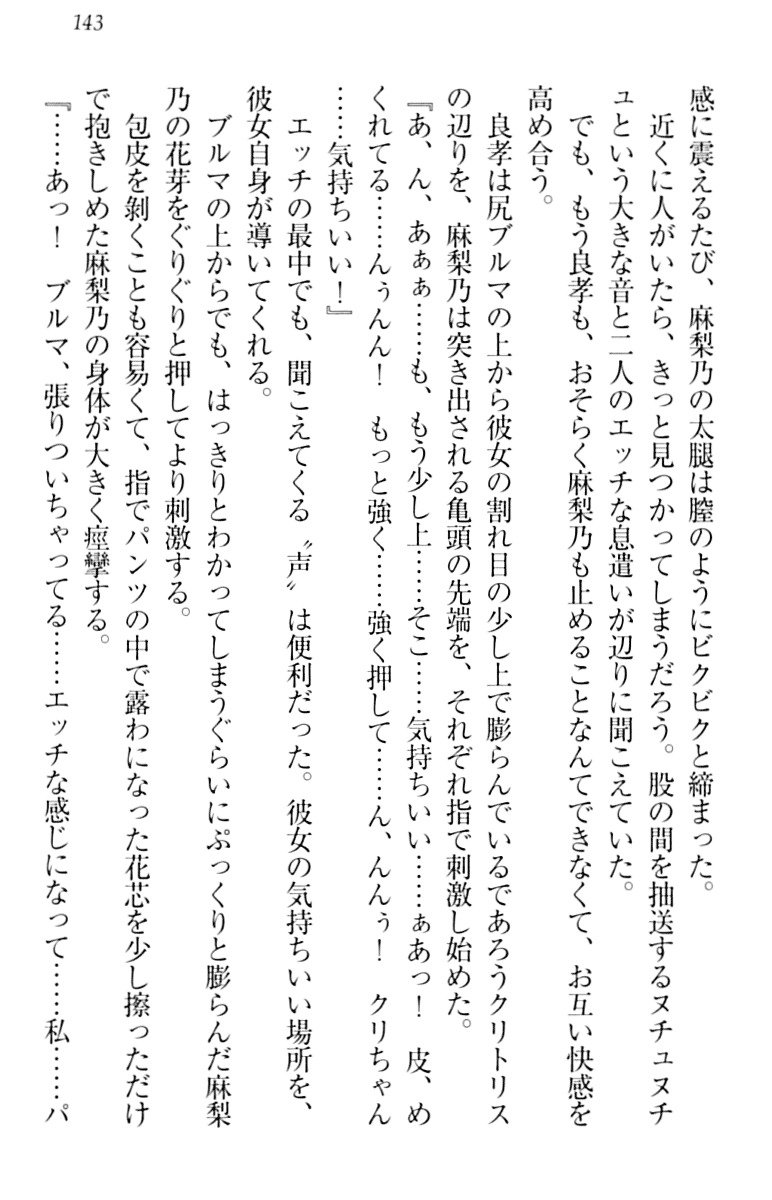 143
感に震えるたび、麻梨乃の太腿は膣のようにビクビクと締まった。
近くに人がいたら、きっと見つかってしまうだろう。股の間を抽送するヌチュヌチ
ュという大きな音と二人のエッチな息遣いが辺りに聞こえていた。
でも、もう良孝も、おそらく麻梨乃も止めることなんてできなくて、お互い快感を
高め合う。
良孝は尻ブルマの上から彼女の割れ目の少し上で膨らんでいるであろうクリトリス
の辺りを、麻梨乃は突き出される亀頭の先端を、それぞれ指で刺激し始めた。
『あ、ん、あぁぁ……も、もう少し上……そこ……気持ちいい……ぁあっ!　皮、め
くれてる……んぅんん!　もっと強く……強く押して……ん、んんぅ!　クリちゃん
……気持ちいい!』
エッチの最中でも、聞こえてくる〝声〟は便利だった。彼女の気持ちいい場所を、
彼女自身が導いてくれる。
ブルマの上からでも、はっきりとわかってしまうぐらいにぷっくりと膨らんだ麻梨
乃の花芽をぐりぐりと押してより刺激する。
包皮を剝くことも容易くて、指でパンツの中で露わになった花芯を少し擦っただけ
で抱きしめた麻梨乃の身体が大きく痙攣する。
『……あっ!　ブルマ、張りついちゃってる……エッチな感じになって……私……パ